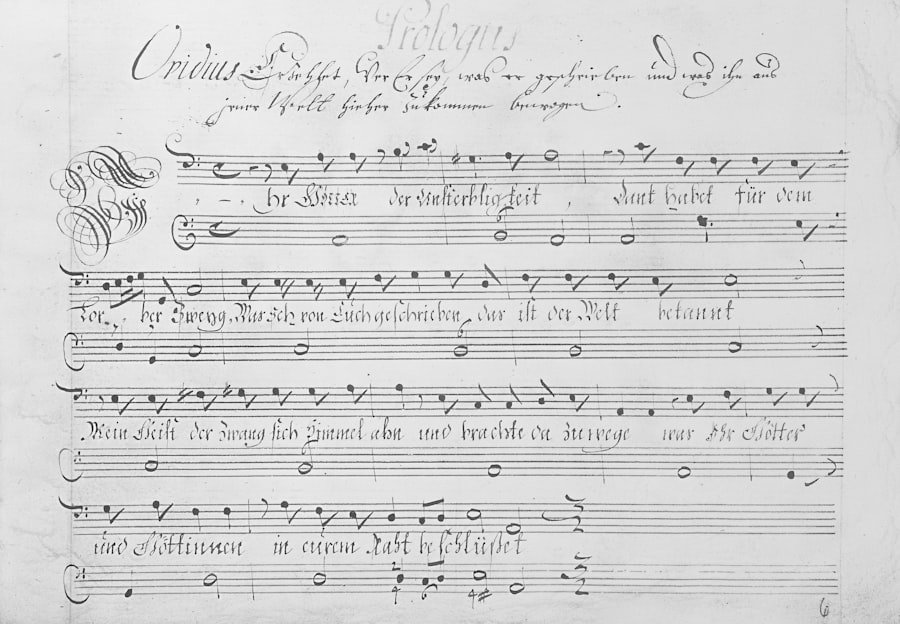 Prologus
Ovidius Erzehlet, Wer Er sey, was er geschrieben und was ihn aus
jener Welt hieher zukommen bewogen.
Ihr Götter der Unsterbligkeit, Dank habet für dem
Lor- ber Zweyg. Was Ich von Euch geschrieben das ist der Welt bekannt
6
Mein Geist der Zwang sich Himmel ahn und brachte da zuwege was Ihr Götter
und Göttinnen in eurem Raht beschlüßet
4 6 4#
6